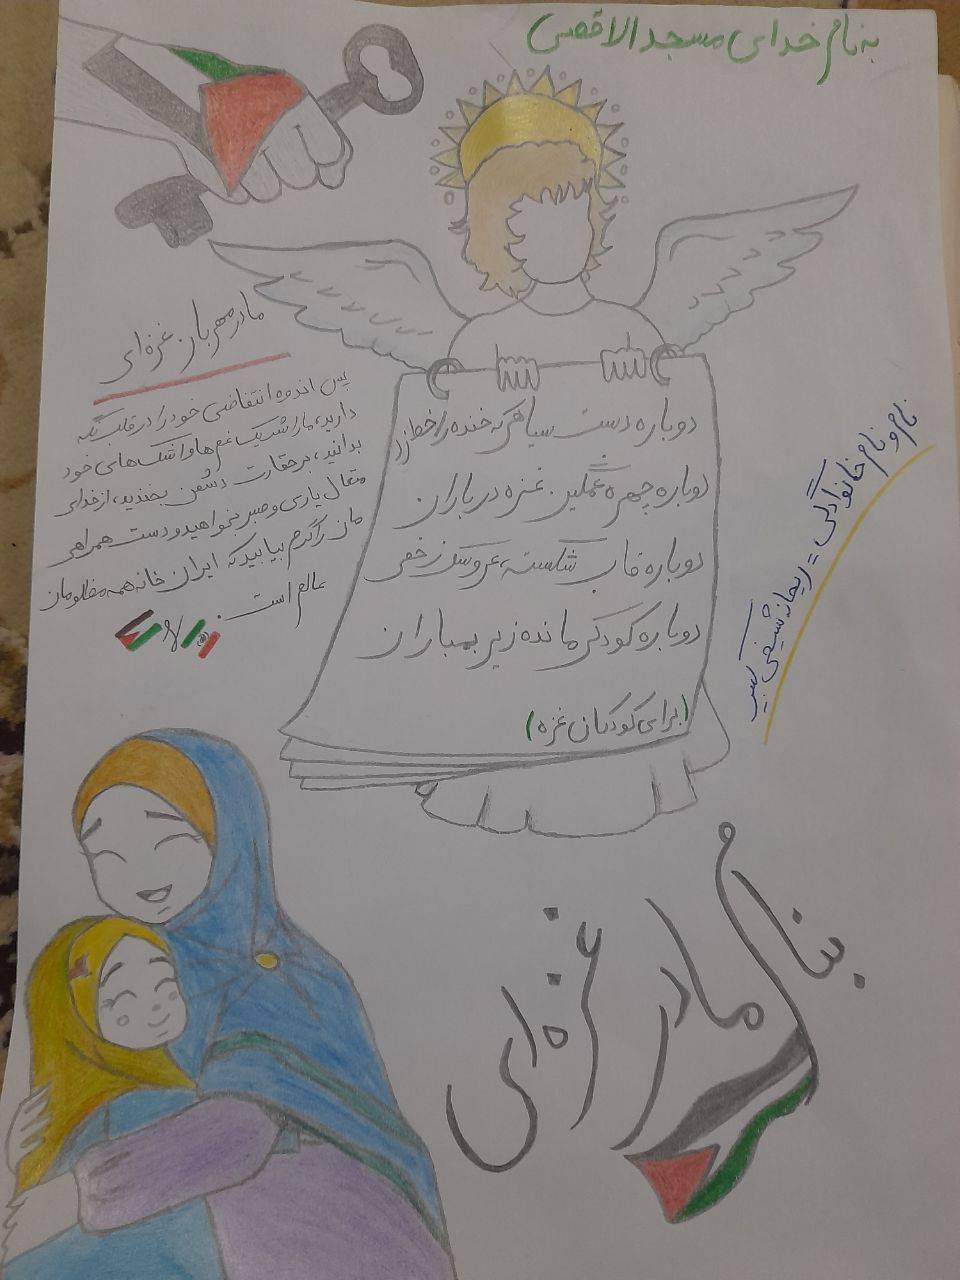 به نام خدای مسجد الاقصی
مادر مهربان غزه‌ای
پس اندوه انتفاضی خود را در قلب نگه
دارید، ما را شریک غم‌ها و اشک‌های خود
بدانید، بر حقارت دشمن بخندید، از خدای
متعال یاری و صبر بخواهید و دست همراهی
مان را گرم بیابید که ایران خانه همه مظلومان
عالم است.
دوباره دست سیاهی که خنده را خط زد
دوباره چهره غمگین غزه در باران
دوباره قاب شکسته، عروسک زخمی
دوباره کودکی مانده زیر بمباران
(برای کودکان غزه)
نام و نام خانوادگی = ریحانه
بنام مادر غزه‌ای